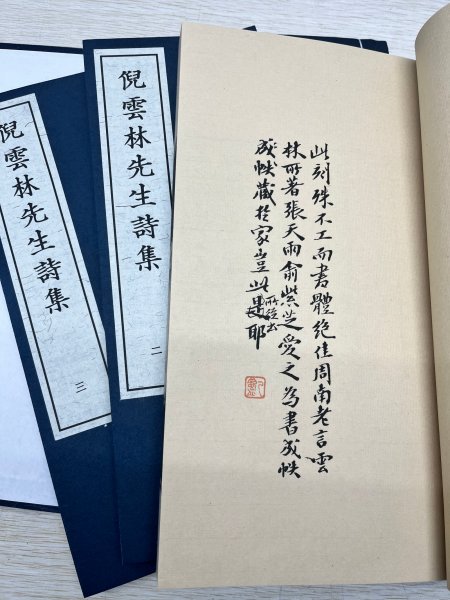 此刻殊不工而書體絕佳周南老言雲
林所著張天雨俞紫芝愛之為書成帙
成帙藏於家豈此是耶
倪雲林先生詩集
二
倪雲林先生詩集
三